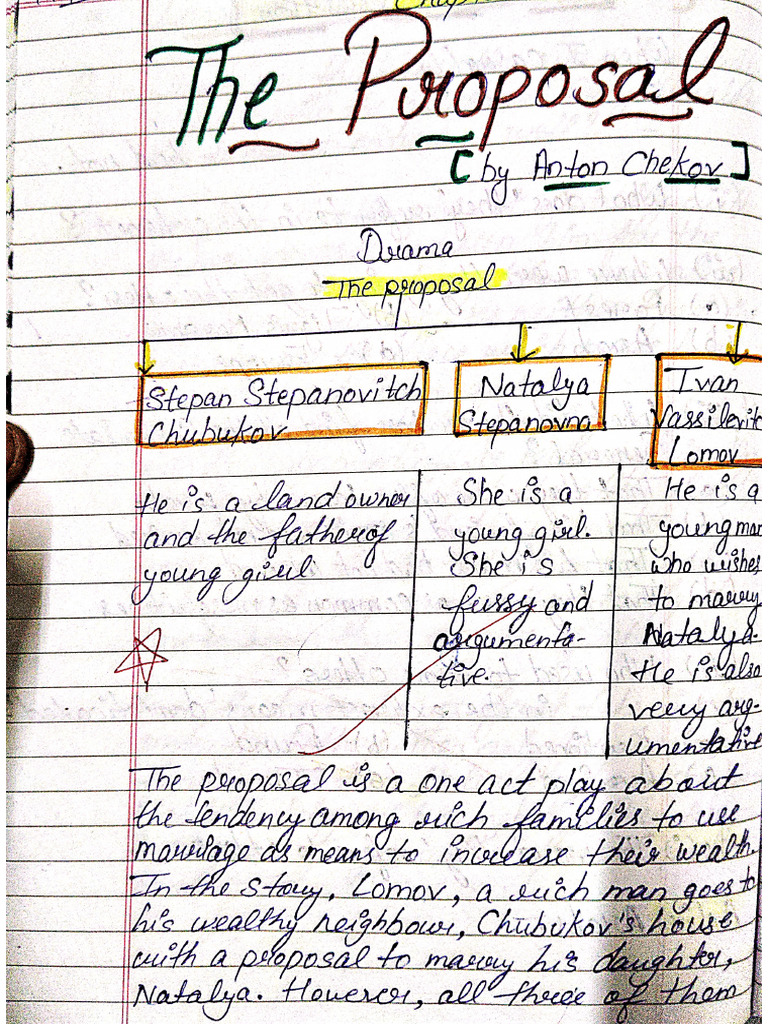 The Proposal
[by Anton Chekov]
Drama
The proposal
Stepan Stepanovitch
Chubukov
Natalya
Stepanovna
Ivan
Vassilevitc
Lomov
He is a land owner
and the father of
young girl
She is a
young girl.
She is
fussy and
argumenta-
tive.
He is a
young man
who wishes
to marry
Natalya.
He is also
very arg-
umentative
The proposal is a one act play about
the tendency among rich families to use
marriage as means to increase their wealth.
In the story, Lomov, a rich man goes to
his wealthy neighbour, Chubukov's house
with a proposal to marry his daughter,
Natalya. However, all three of them